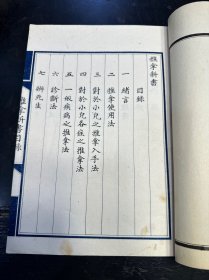 推拿新書
目錄
一 緒言
二 推拿使用法
三 對於小兒之推拿入手法
四 對於小兒各症之推拿法
五 一般疾病之推拿法
六 診斷法
七 辨死生
推拿新書目錄